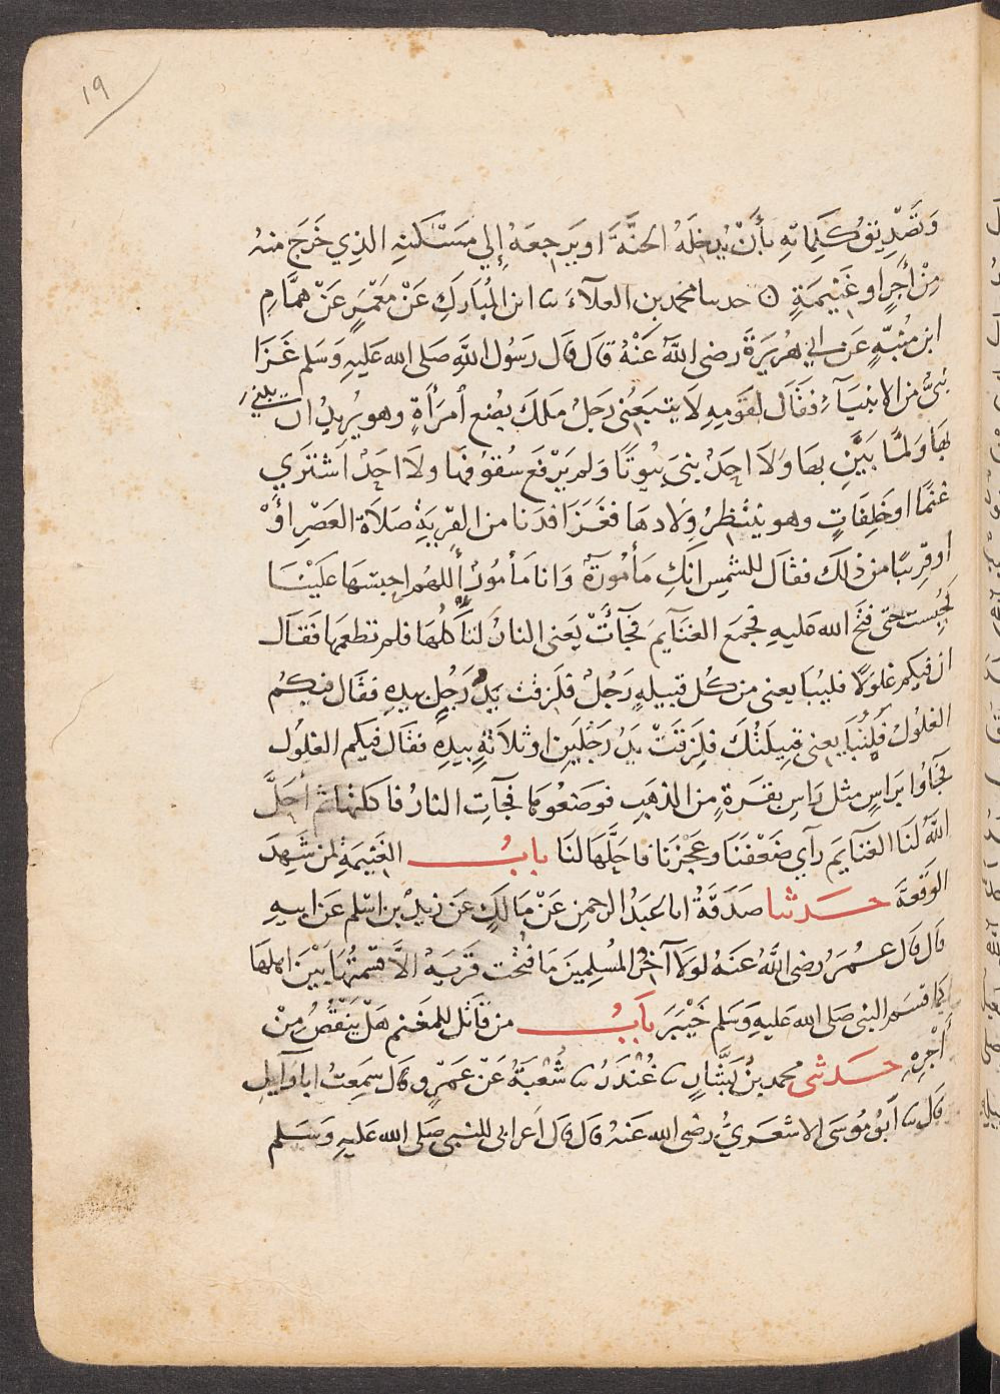 ١٩
وَتَصْدِيقُ كَلِمَاتِهِ بأَنْ يُدخِلَهُ الجنَّةَ او يَرجِعَهُ إِلي مَسْكَنِهِ الذِي خَرَجَ منهُ
مِنْ أَجرٍ او غَنيِمَةٍ ٥ حدثنا محمد بن العلآءِ ثنا ابن المُبَارَكِ عَنْ مَعْمَرٍ عَنْ همَّامِ
ابن مُنَبّهٍ عَن ابي هُرَيرَةَ رضى اللَّه عَنْهُ قَالَ قَال رَسُول اللَّهِ صَلى الله عَليهِ وَسَلم غَزَا
نَبىُّ من الانبيَآءِ فَقَال لقَومِهِ لَا يتبَعْنى رَجلُ مَلَكَ بُضع اُمرَأةٍ وهو يُريدُ ان يبنيَ
بهَا وَلمَّا يَبْنِ بهَا وَلَا احدُ بنىَ بيُوتًا وَلم يَرْفَع سُقوُفهَا ولَا احَدُ اشتَرَي
غنمًا او خَلِفَاتٍ وهو ينتَظِرُ وِلَادهَا فَغَزَا فدَنا من القريَةِ صَلَاة العَصْرِ أوْ
أو قريبًا من ذلكَ فقالَ للشمس انَكِ مَأمُورَةُ وَانا مَأمُورُ أللهُم احبسْهَا عَلَيْنَا
فحُبِست حتى فتَح الله عَليهِ فجمَع الغنَايمَ فجآتْ يَعنى النارُ لتأكلُهَا فلم تطعمهَا فَقَال
ان فيكم غلُولًا فليُبَايعنى من كُل قبيلهٍ رَجُلُ فلَزقَتْ يَدُ رَجُلٍ بيدِهِ فقَال فيكمُ
الغلُولُ فَلتُبَايعنى قبِيلَتُكَ فلِزقَتْ يَدُ رَجُلَينِ او ثلَاثةٍ بيدِهِ فقَال فيكم الغلُولُ
فجَاوُا برَاسٍ مثل رَاسِ بقَرَةٍ من الذهَبِ فوَضعُوهَا فجآتِ النارُ فاكلتهَا ثم أحَلَّ
اللَّهُ لنَا الغنَايمَ رَآي ضَعْفَنَا وعَجْزَنا فاحَلَّهَا لنَا بابُ الغَنيْمَةِ لمن شَهِدَ
الوقعَةَ حَدثنا صَدَقَةُ انا عَبدُ الرحمنِ عَنْ مَالكٍ عَن زَيدِ بن اسْلم عَن ابيهِ
قال قال عُمَرُ رضى اللَّهُ عَنهُ لولَا آخِرُ المُسلِمينَ مَا فتُحت قريَةُ الاَّ قسَمتُهَا بَيْنَ اهلهَا
كما قسَمَ النبى صَلى الله عَليهِ وَسَلم خَيْبَرَ بَابُ من قاتل للمغنم هَل يَنْقُصُ مِنْ
أجْرِهِ حَدثنى محمد بنُ بَشَّارٍ ثنا غُنْدَرُ ثنا شُعْبَةُ عَن عَمرٍو قال سَمِعتُ ابا وَآيلٍ
قال ثنا أبُو مُوسَى الاشعَريُّ رضى الله عَنهُ قال قال أعرَابى للنبى صَلى الله عَليهِ وَسَلم